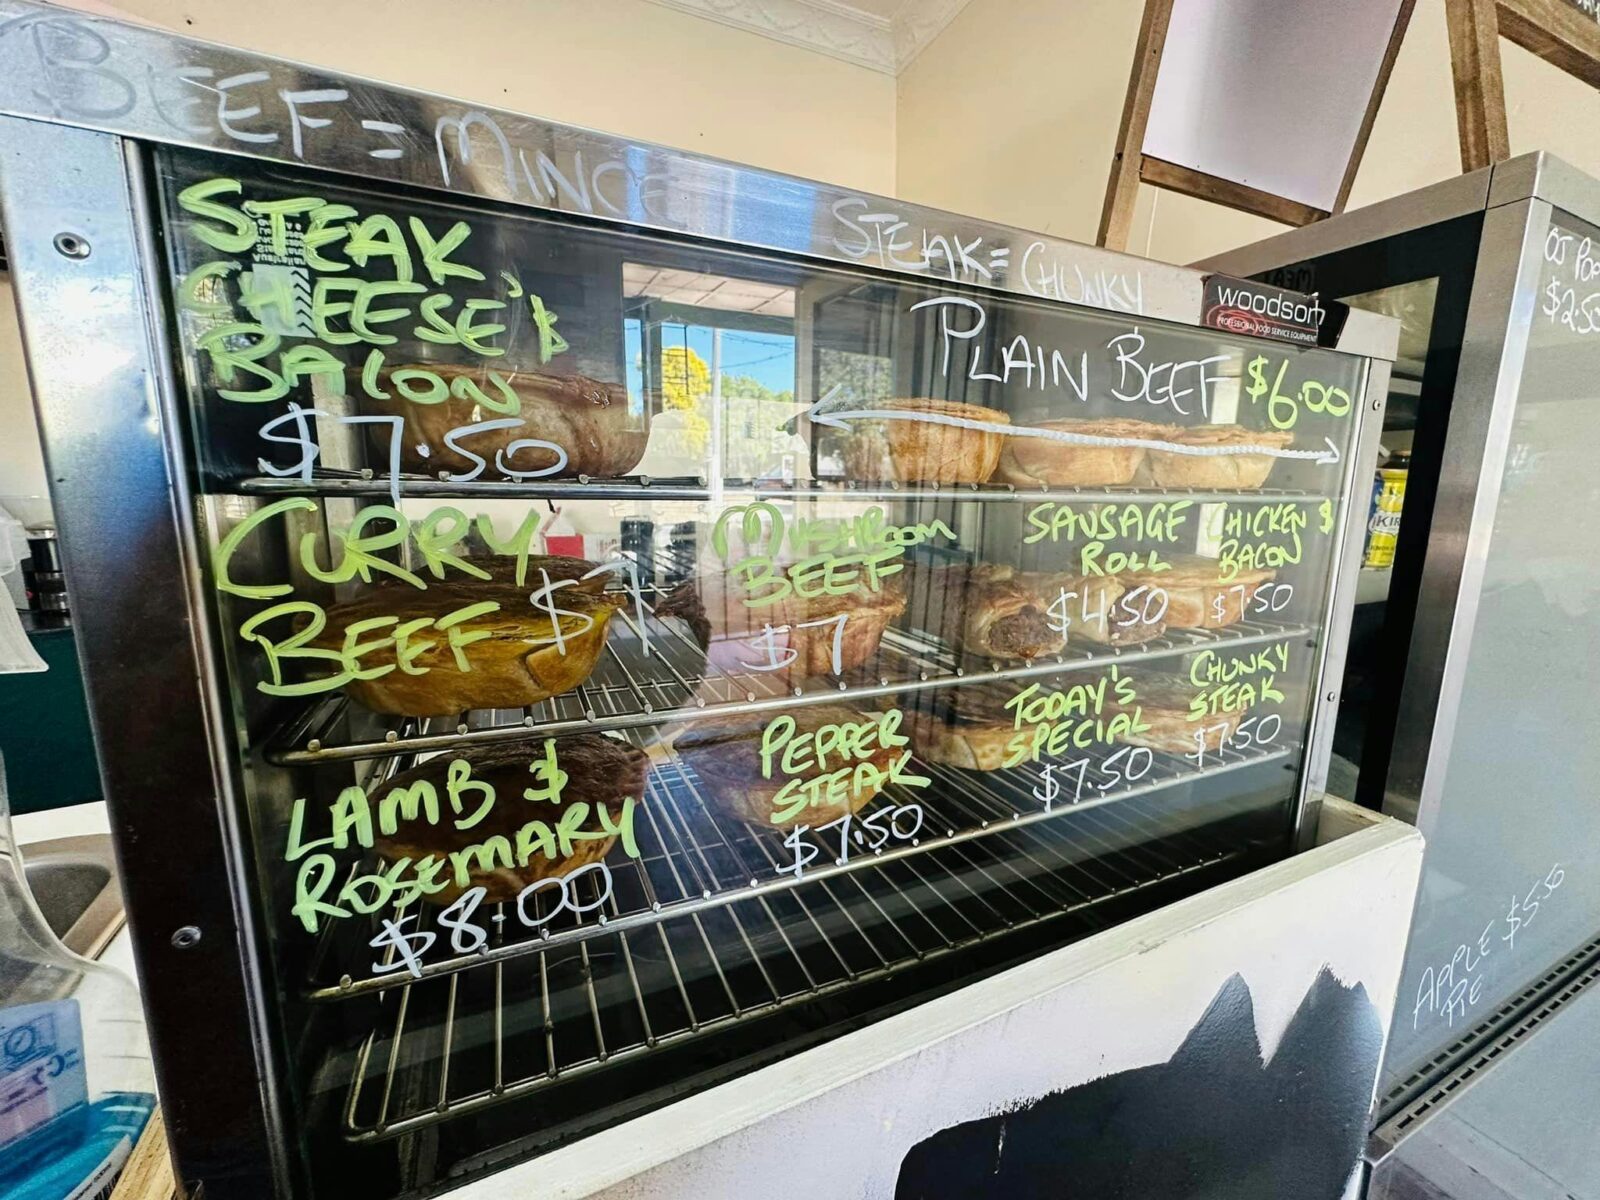 BEEF = MINCE
STEAK = CHUNKY
STEAK
CHEESE &
BACON
$7.50
woodson
PROFESSIONAL FOOD SERVICE EQUIPMENT
PLAIN BEEF $6.00
CURRY
BEEF $7
MUSHROOM
BEEF
$7
SAUSAGE
ROLL
$4.50
CHICKEN &
BACON
$7.50
LAMB &
ROSEMARY
$8.00
PEPPER
STEAK
$7.50
TODAY'S
SPECIAL
$7.50
CHUNKY
STEAK
$7.50
OJ
$2.50
APPLE $5.50
PIE